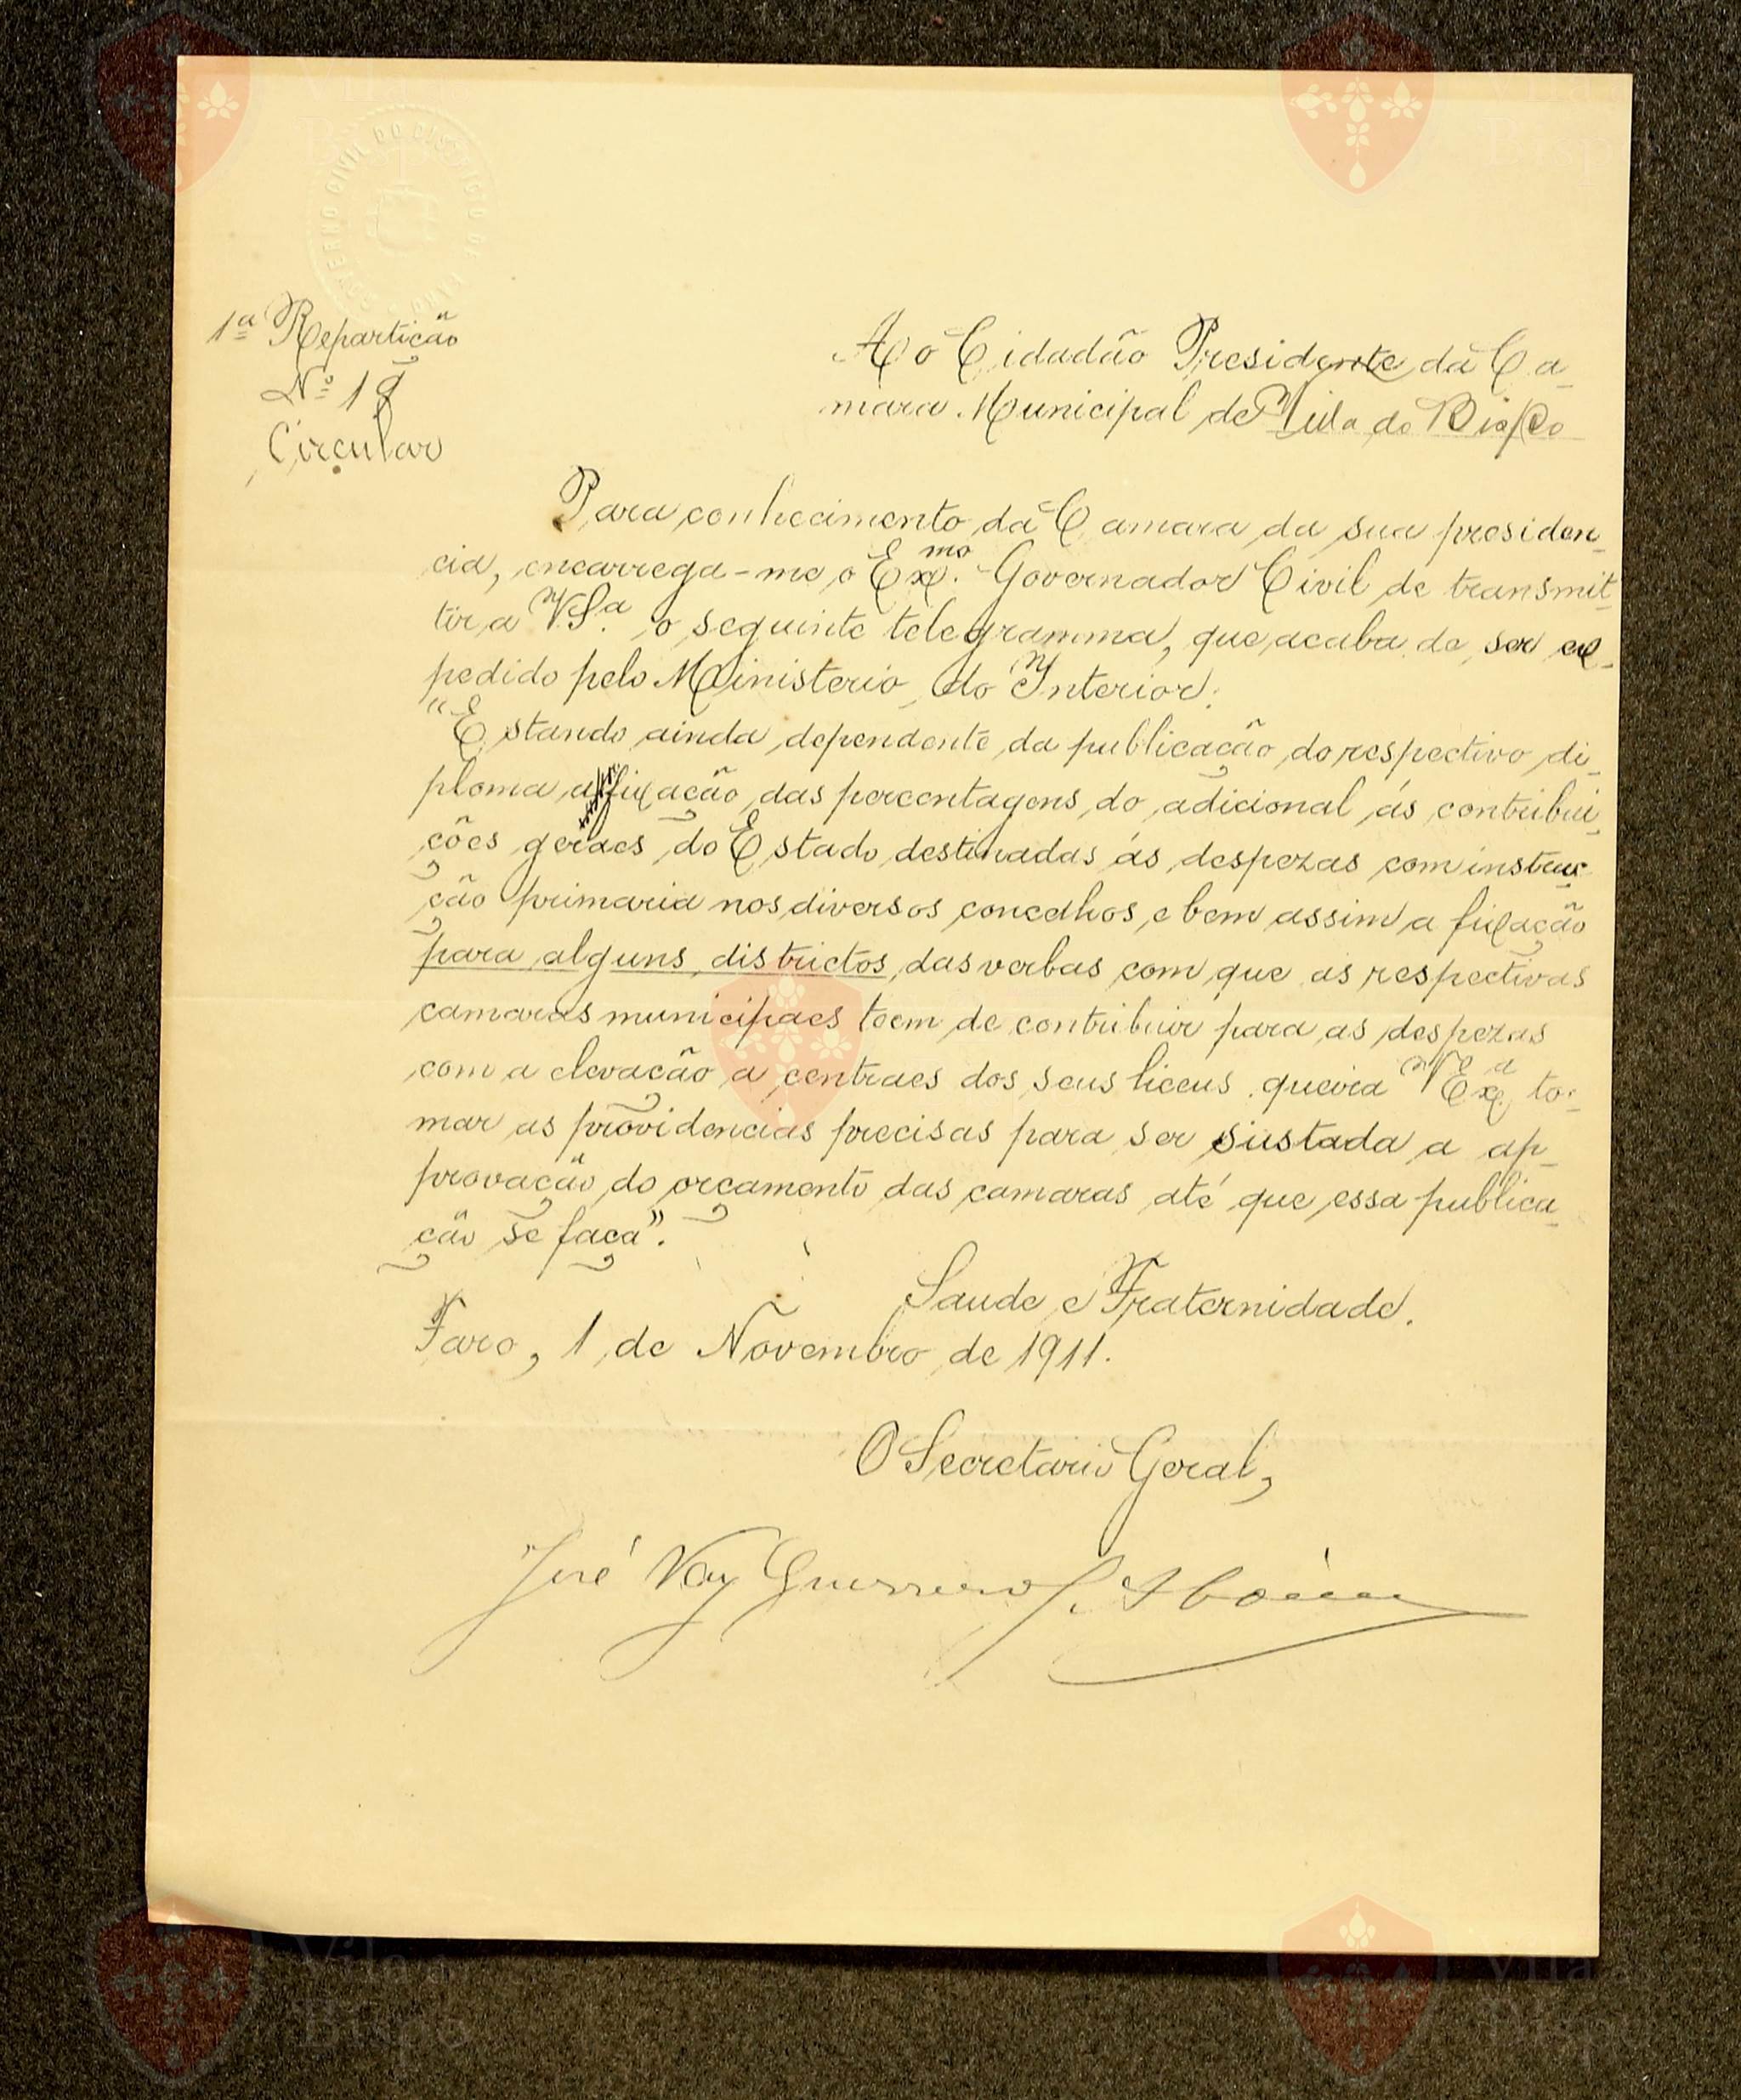 GOVERNO CIVIL DO DISTRICTO DE FARO
1ª Repartição
Nº 18
Circular
Ao Cidadão Presidente da Ca-
mara Municipal de Villa do Bispo
Para conhecimento da Camara da sua presiden-
cia, encarrega-me o Exmo. Governador Civil de transmit-
tir a V.Sª. o seguinte telegramma, que acaba de ser ex-
pedido pelo Ministerio do Interior:
"Estando ainda dependente da publicação do respectivo di-
ploma a fixação das percentagens do adicional ás contribui-
ções geraes do Estado destinadas ás despezas com instruc-
ção primaria nos diversos concelhos e bem assim a fixação
para alguns districtos das verbas com que as respectivas
camaras municipaes teem de contribuir para as despezas
com a elevação a centraes dos seus liceus queira V. Exª to-
mar as providencias precisas para ser sustada a ap-
provação do orçamento das camaras até que essa publica-
ção se faça".
Saude e Fraternidade.
Faro, 1 de Novembro de 1911.
O Secretario Geral,
José Vaz Guerreiro J. Aboim
Vila do
Bispo